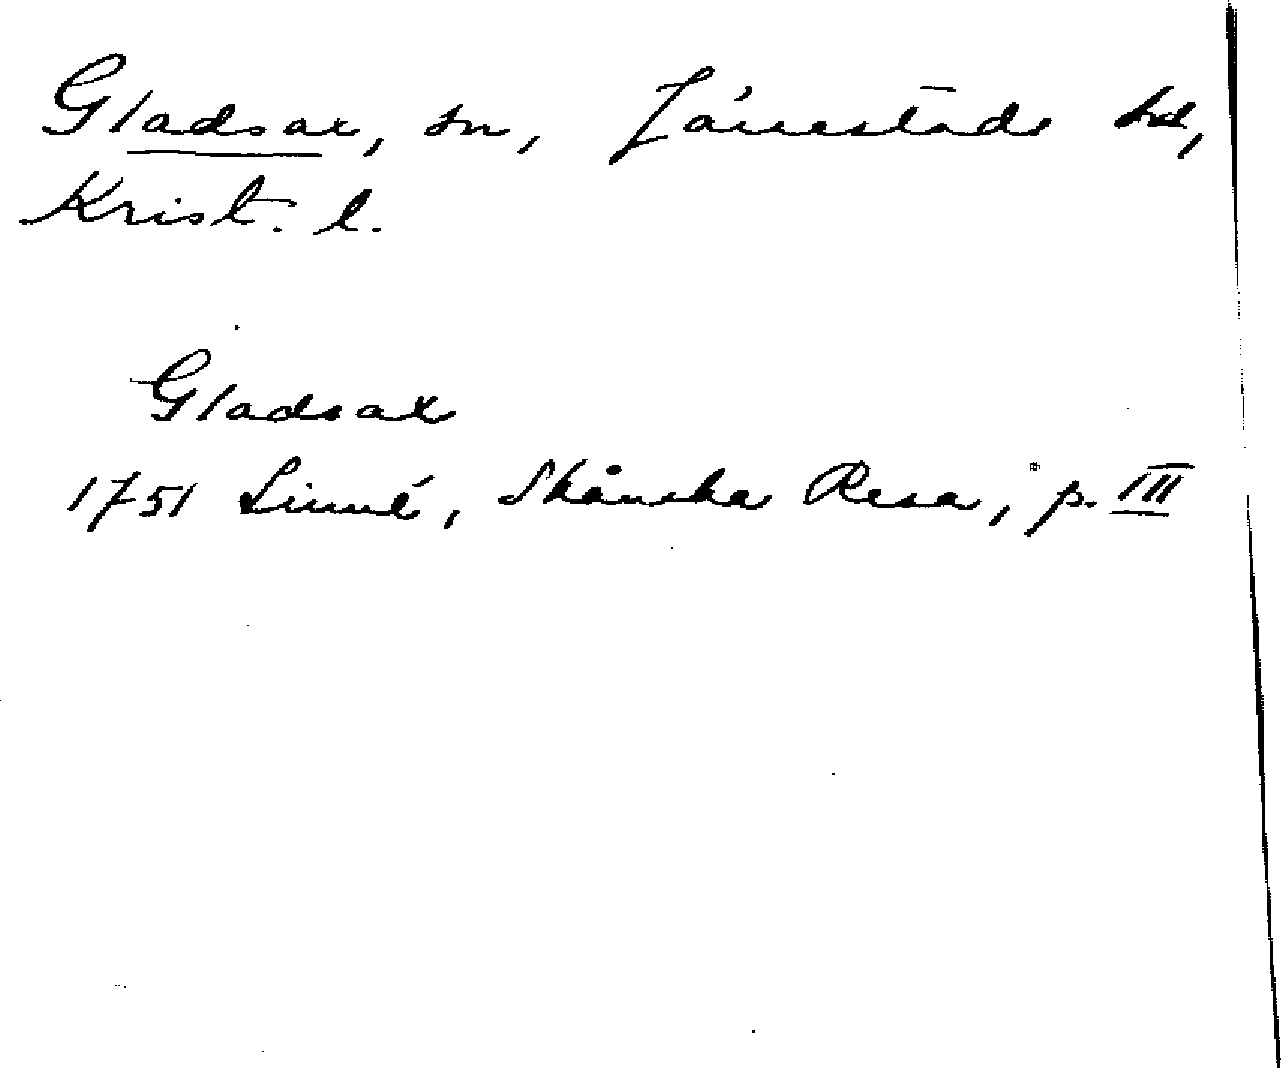 Gladsax, sn, Järrestads hd,
Krist. l.
Gladsax
1751 Linné, Skånska Resa, p. III